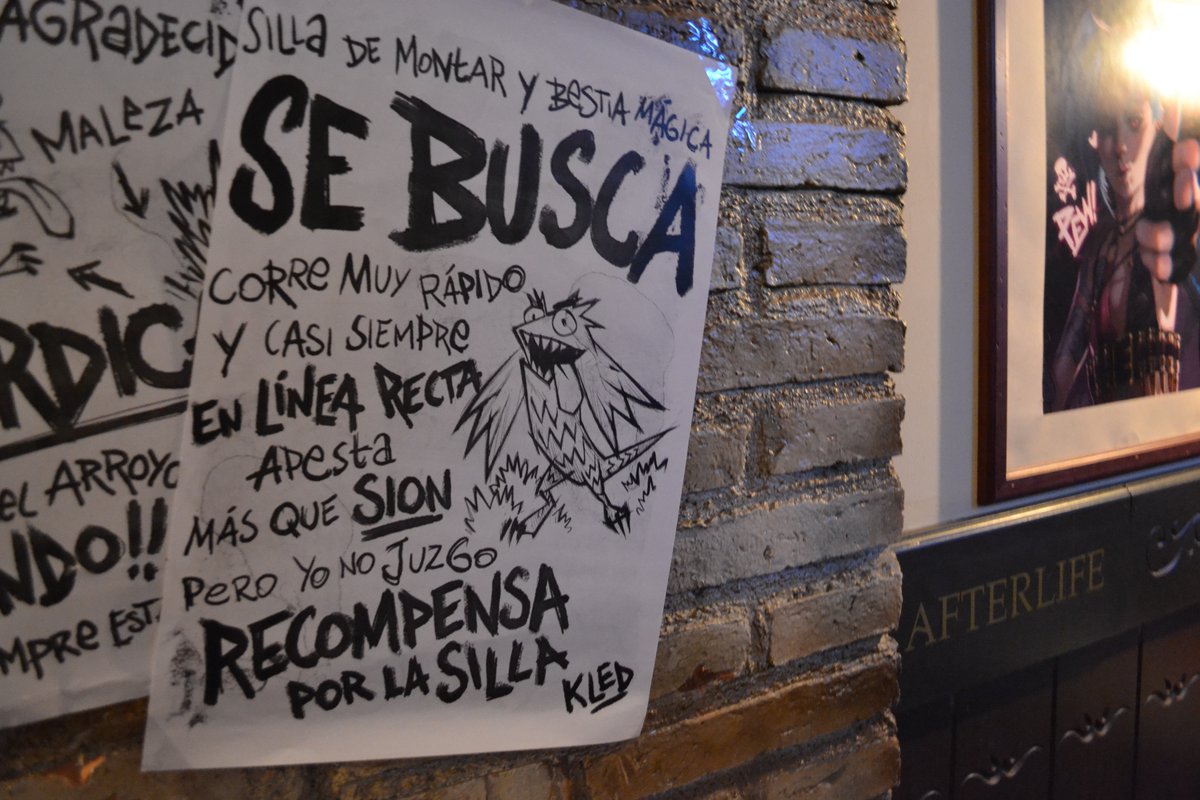 AGRADECID
MALEZA
RDIC
EL ARROYO
NDO!!
MPRE EST
SILLA DE MONTAR Y BESTIA MÁGICA
SE BUSCA
CORRE MUY RÁPIDO
Y CASI SIEMPRE
EN LÍNEA RECTA
APESTA
MÁS QUE SION
PERO YO NO JUZGO
RECOMPENSA
POR LA SILLA
KLED
PEW!
AFTERLIFE